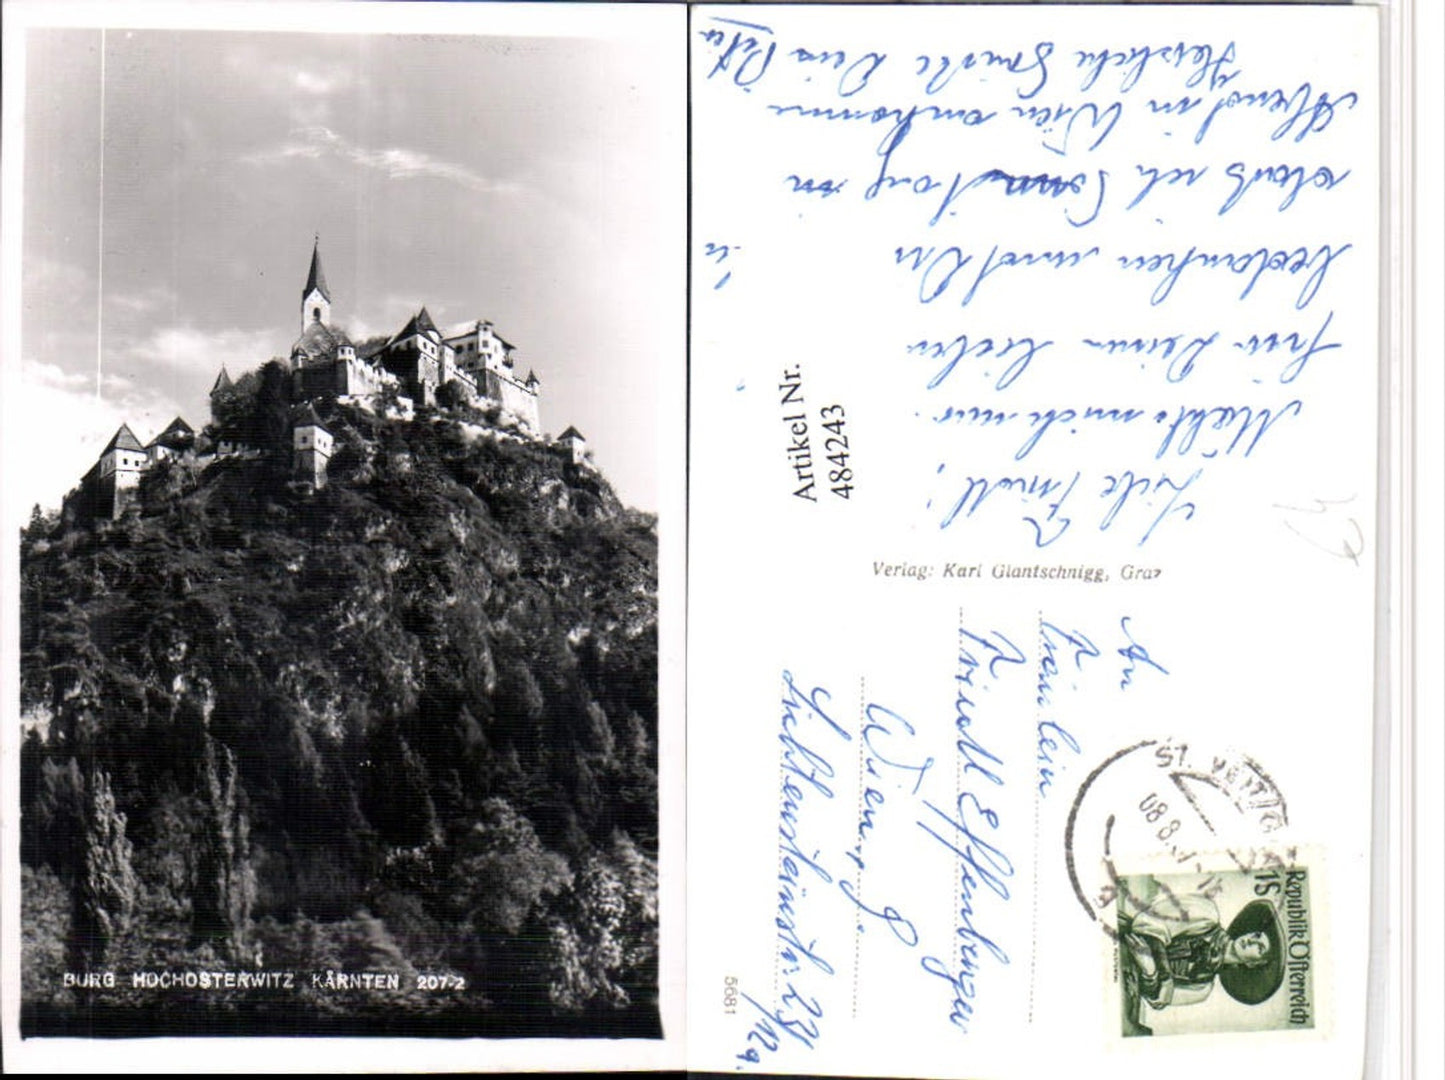 BURG HOCHOSTERWITZ KÄRNTEN 207-2
Liebe Friedl!
Möchte mich nur
für Deinen lieben
bedanken und Dir
daß ich Sonntag in
Abend in Wien ankomme
Herzliche Grüße Dein Peter
Artikel Nr.
484243
Verlag: Karl Glantschnigg, Graz
An
Fräulein
Friedl Effenberger
Wien 9.
Lichtensteinstr. 23
/12a.
5681
ST. VEIT
08 8.
1S
Republik Österreich